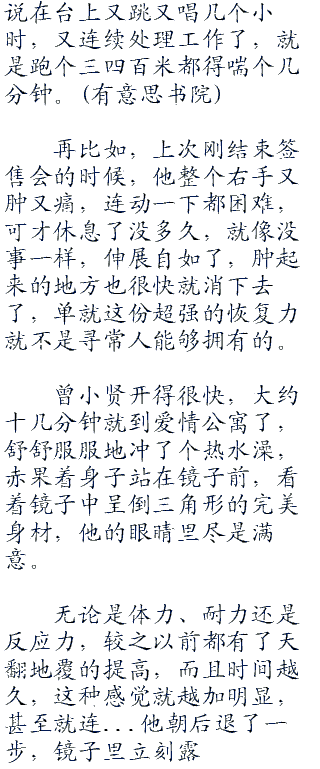 说在台上又跳又唱几个小
时，又连续处理工作了，就
是跑个三四百米都得喘个几
分钟。(有意思书院)
再比如，上次刚结束签
售会的时候，他整个右手又
肿又痛，连动一下都困难，
可才休息了没多久，就像没
事一样，伸展自如了，肿起
来的地方也很快就消下去
了，单就这份超强的恢复力
就不是寻常人能够拥有的。
曾小贤开得很快，大约
十几分钟就到爱情公寓了，
舒舒服服地冲了个热水澡，
赤果着身子站在镜子前，看
着镜子中呈倒三角形的完美
身材，他的眼睛里尽是满
意。
无论是体力、耐力还是
反应力，较之以前都有了天
翻地覆的提高，而且时间越
久，这种感觉就越加明显，
甚至就连...他朝后退了一
步，镜子里立刻露